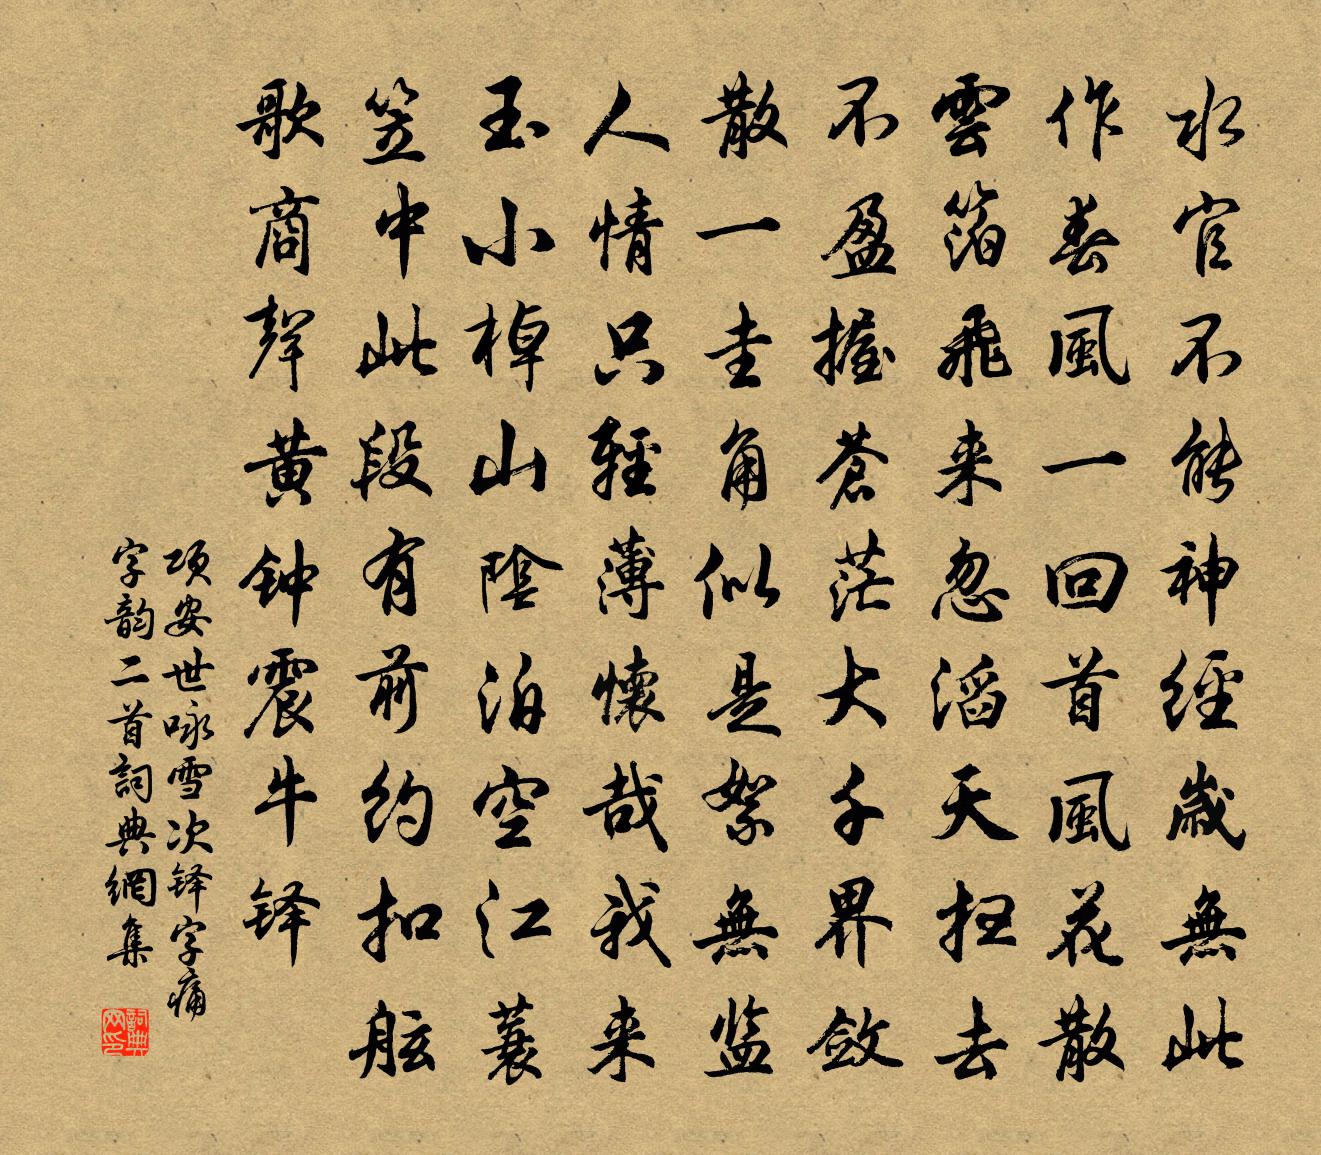 水官不能神經歲無此
作春風一回首風花散
雲箔飛来忽滔天抂去
不盈握蒼茫大千界斂
散一圭角似是絮無监
人情只輕薄懷哉我来
玉小棹山陰泊空江蓑
笠中此段有前約扣舷
歌商聲黄钟震牛铎
项安世咏雪次铎字痛
字韵二首詞典網集
詞典网印